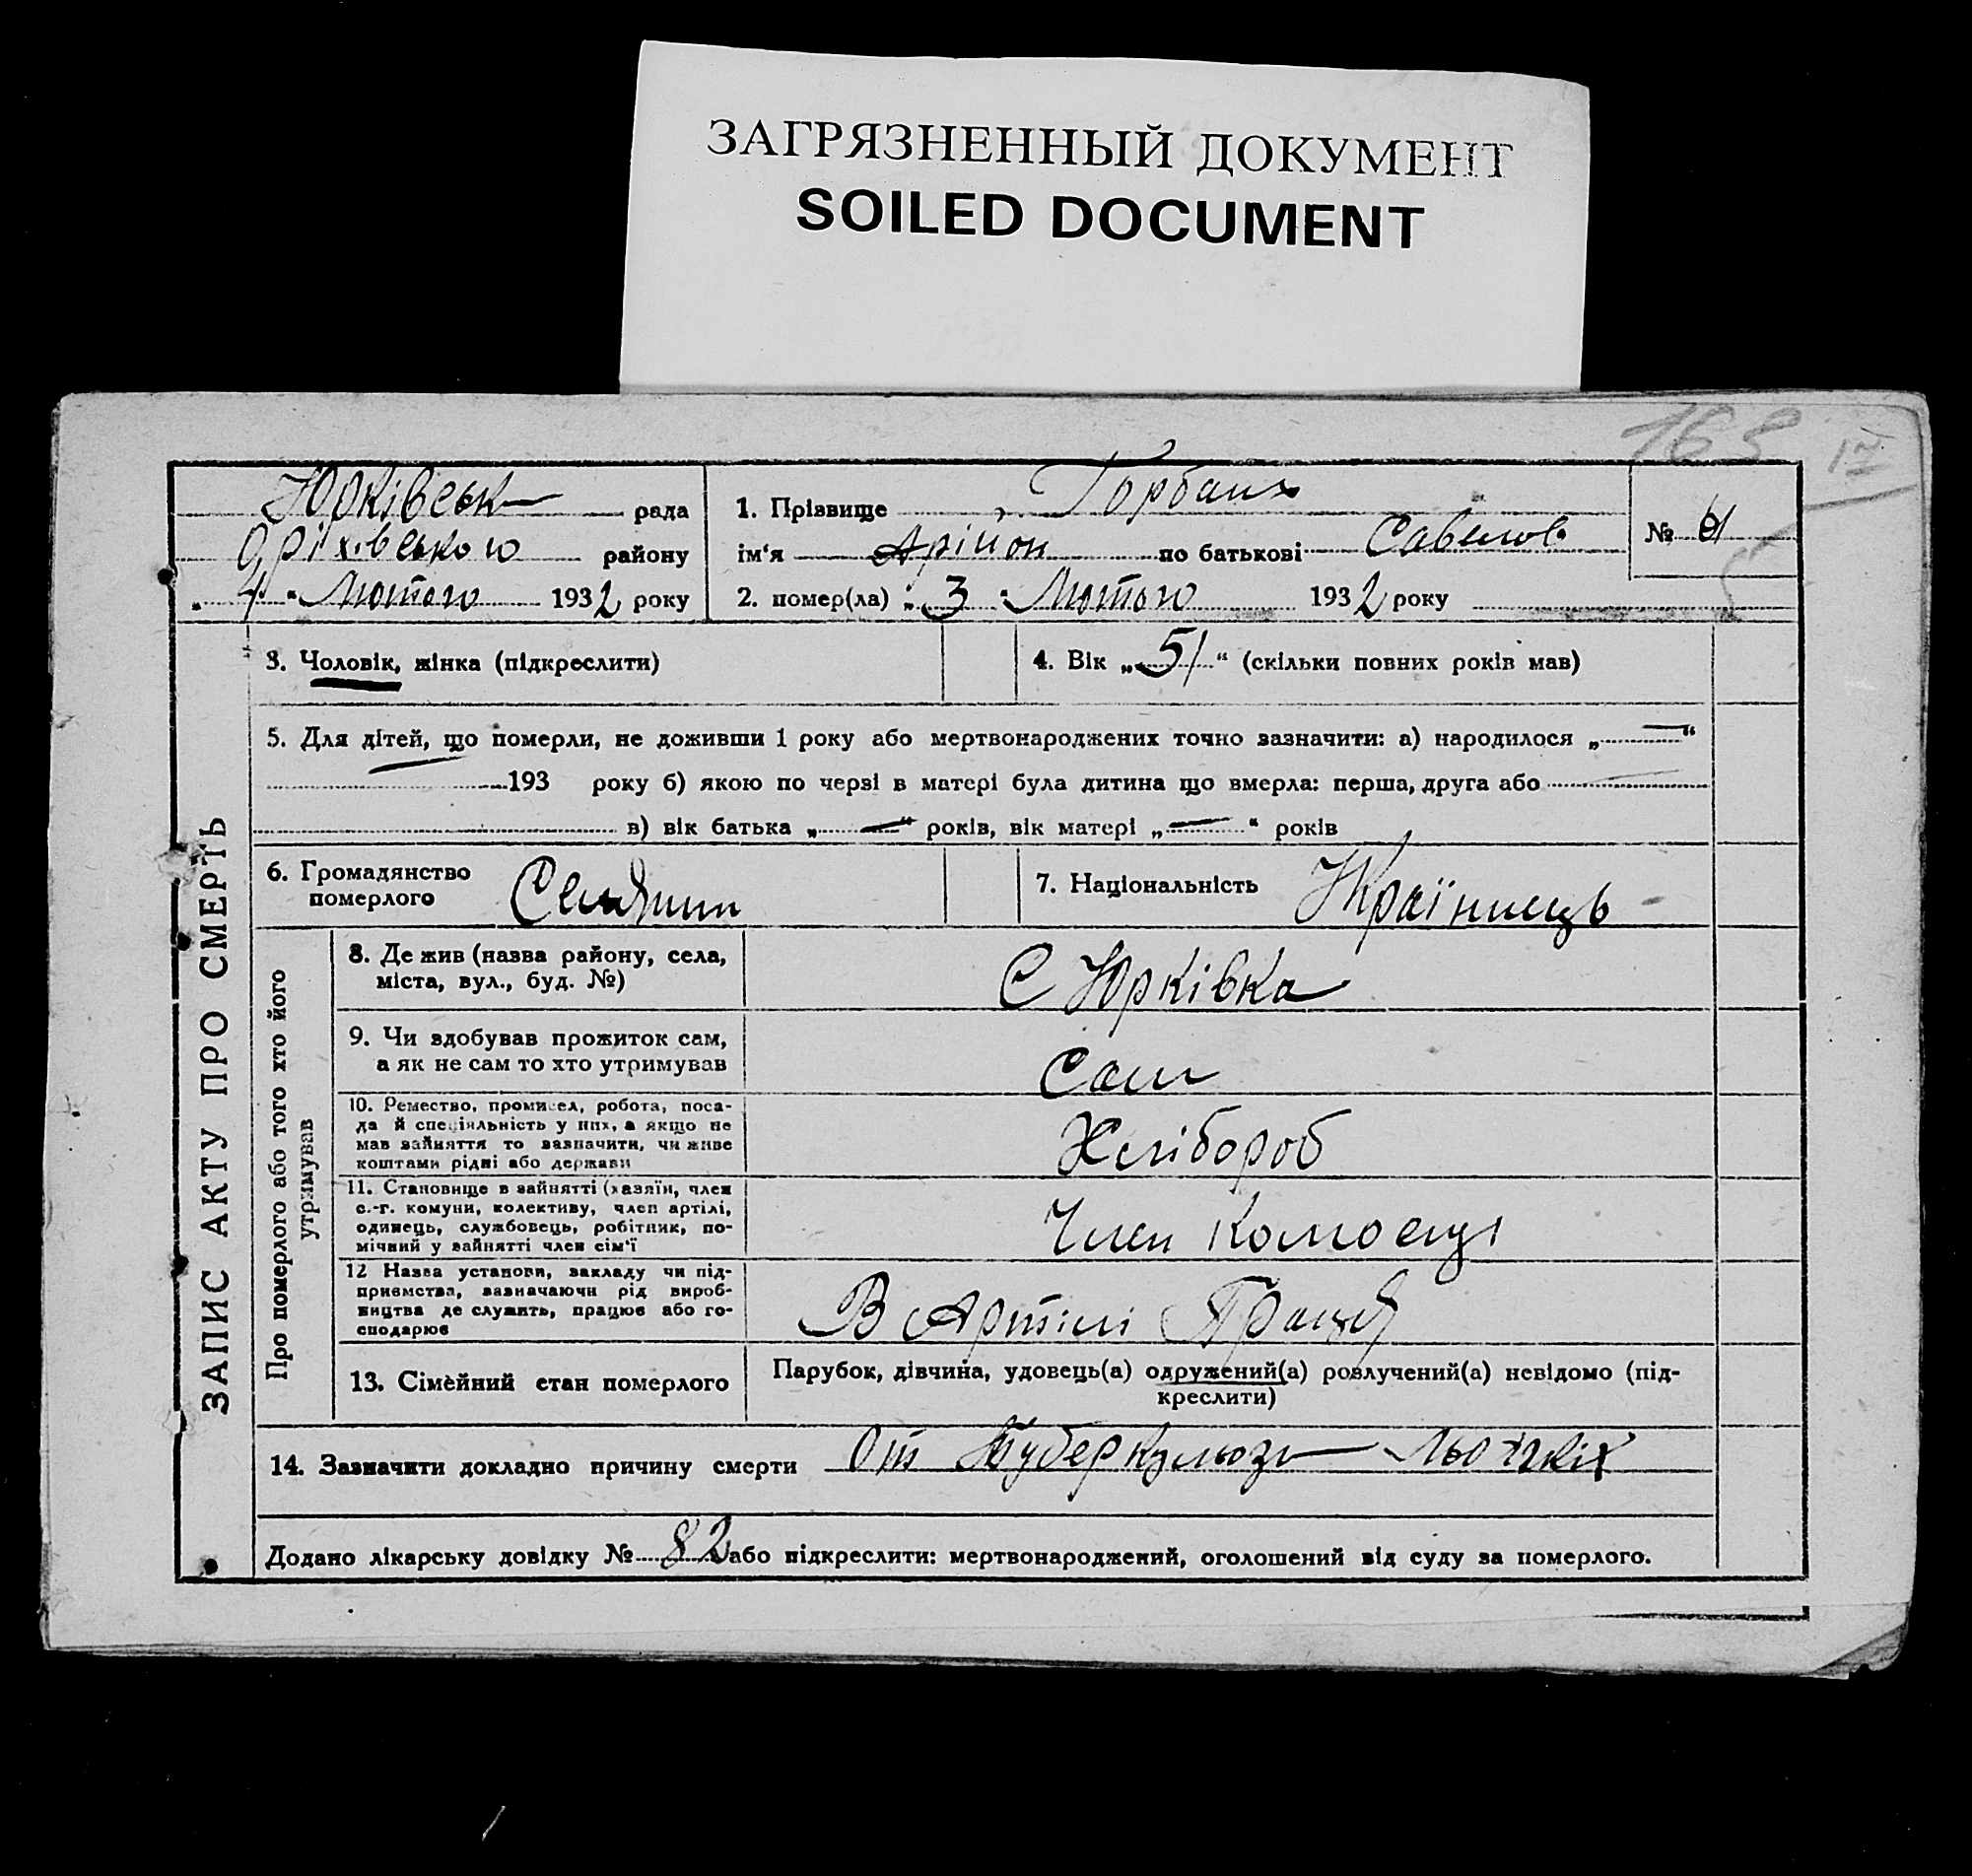 ЗАГРЯЗНЕННЫЙ ДОКУМЕНТ
SOILED DOCUMENT
163 IV
Юрківськ рада
Оріхівського району
„ 4 “ Лютого 1932 року
1. Прізвище Горбань
ім'я Арійон по батькові Савелов.
2. помер(ла) „ 3 “ Лютого 1932 року
№
ЗАПИС АКТУ ПРО СМЕРТЬ
3. Чоловік, жінка (підкреслити)
4. Вік „ 51 “ (скільки повних років мав)
5. Для дітей, що померли, не доживши 1 року або мертвонароджених точно зазначити: а) народилося „ — “
193 року б) якою по черзі в матері була дитина що вмерла: перша, друга або
в) вік батька „ — “ років, вік матері „ — “ років
6. Громадянство
померлого Селянин
7. Національність Українець
Про померлого або того хто його
утримував
8. Де жив (назва району, села,
міста, вул., буд. №)
С Юрківка
9. Чи здобував прожиток сам,
а як не сам то хто утримував
Сам
10. Ремество, промисел, робота, поса-
да й спеціяльність у них, а якщо не
мав зайняття то зазначити, чи живе
коштами рідні або держави
Хлібороб
11. Становище в зайнятті (хазяїн, член
с.-г. комуни, колективу, член артілі,
одинець, службовець, робітник, по-
мічний у зайнятті член сім'ї
Член
12 Назва установи, закладу чи під-
приємства, зазначаючи рід вироб-
ництва де служить, працює або го-
сподарює
В Артілі Праця
13. Сімейний стан померлого
Парубок, дівчина, удовець(а) одружений(а) розлучений(а) невідомо (під-
креслити)
14. Зазначити докладно причину смерти От Туберкульозу
Додано лікарську довідку № 82 або підкреслити: мертвонароджений, оголошений від суду за померлого.